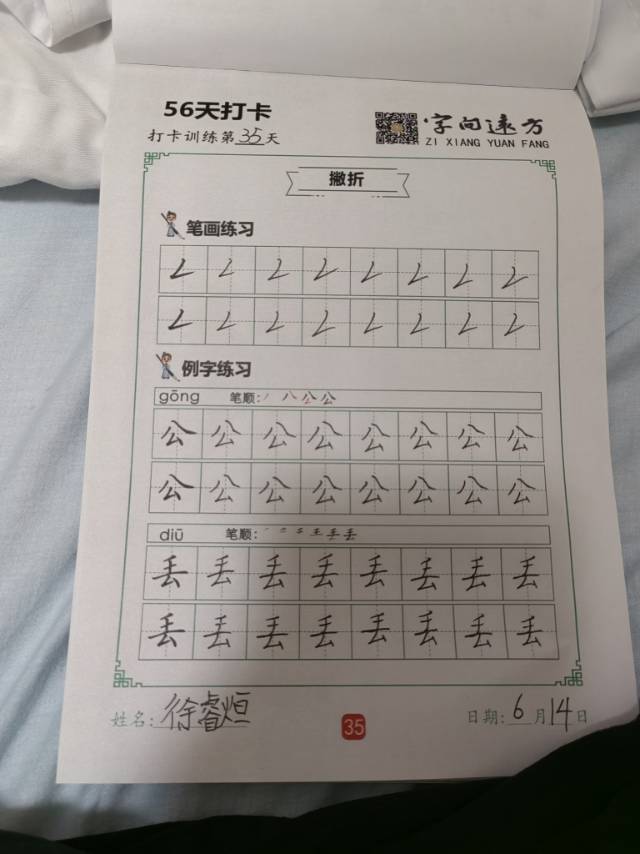 56天打卡
打卡训练第35天
字向远方
ZI XIANG YUAN FANG
撇折
笔画练习
例字练习
gōng 笔顺: 丿 八 公 公
公 公 公 公 公 公 公 公
公 公 公 公 公 公 公 公
diū 笔顺: 丢 丢
丢 丢 丢 丢 丢 丢 丢 丢
丢 丢 丢 丢 丢 丢 丢 丢
姓名: 徐睿烜
35
日期: 6月14日